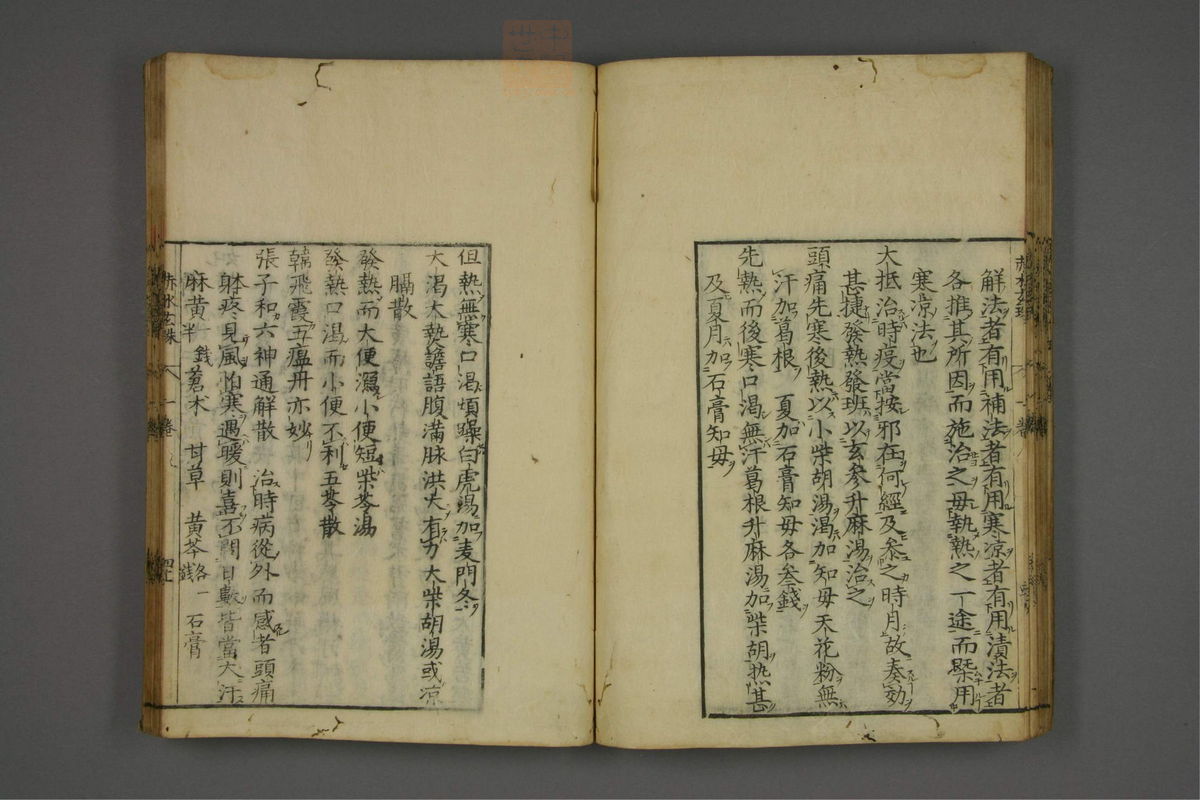 解法者有用補法者有用寒凉者有用漬法者
各推其所因而施治之毋執熱之一途而槩用
寒凉法也
大抵治時疫當按邪在何經及叅之時月故奏効
甚捷發熱發班以玄参升麻湯治之
頭痛先寒後熱以小柴胡湯渴加知毋天花粉無
汗加葛根 夏加石膏知毋各叁錢
先熱而後寒口渴無汗葛根升麻湯加柴胡热甚
及夏月加石膏知毋
但熱無寒口渴煩躁白虎湯加麦門冬
大渴大熱譫語腹滿脉洪大有力大柴胡湯或凉
膈散
發熱而大便㶉小便短柴苓湯
發熱口渴而小便不利五苓散
韓飛霞五瘟丹亦妙
張子和六神通解散 治時病從外而感者頭痛
躰疼見風怕寒遇暖則喜不問日數皆當大汗
麻黄一錢半 蒼术 甘草 黄芩各一錢 石膏
赤水玄珠 一卷